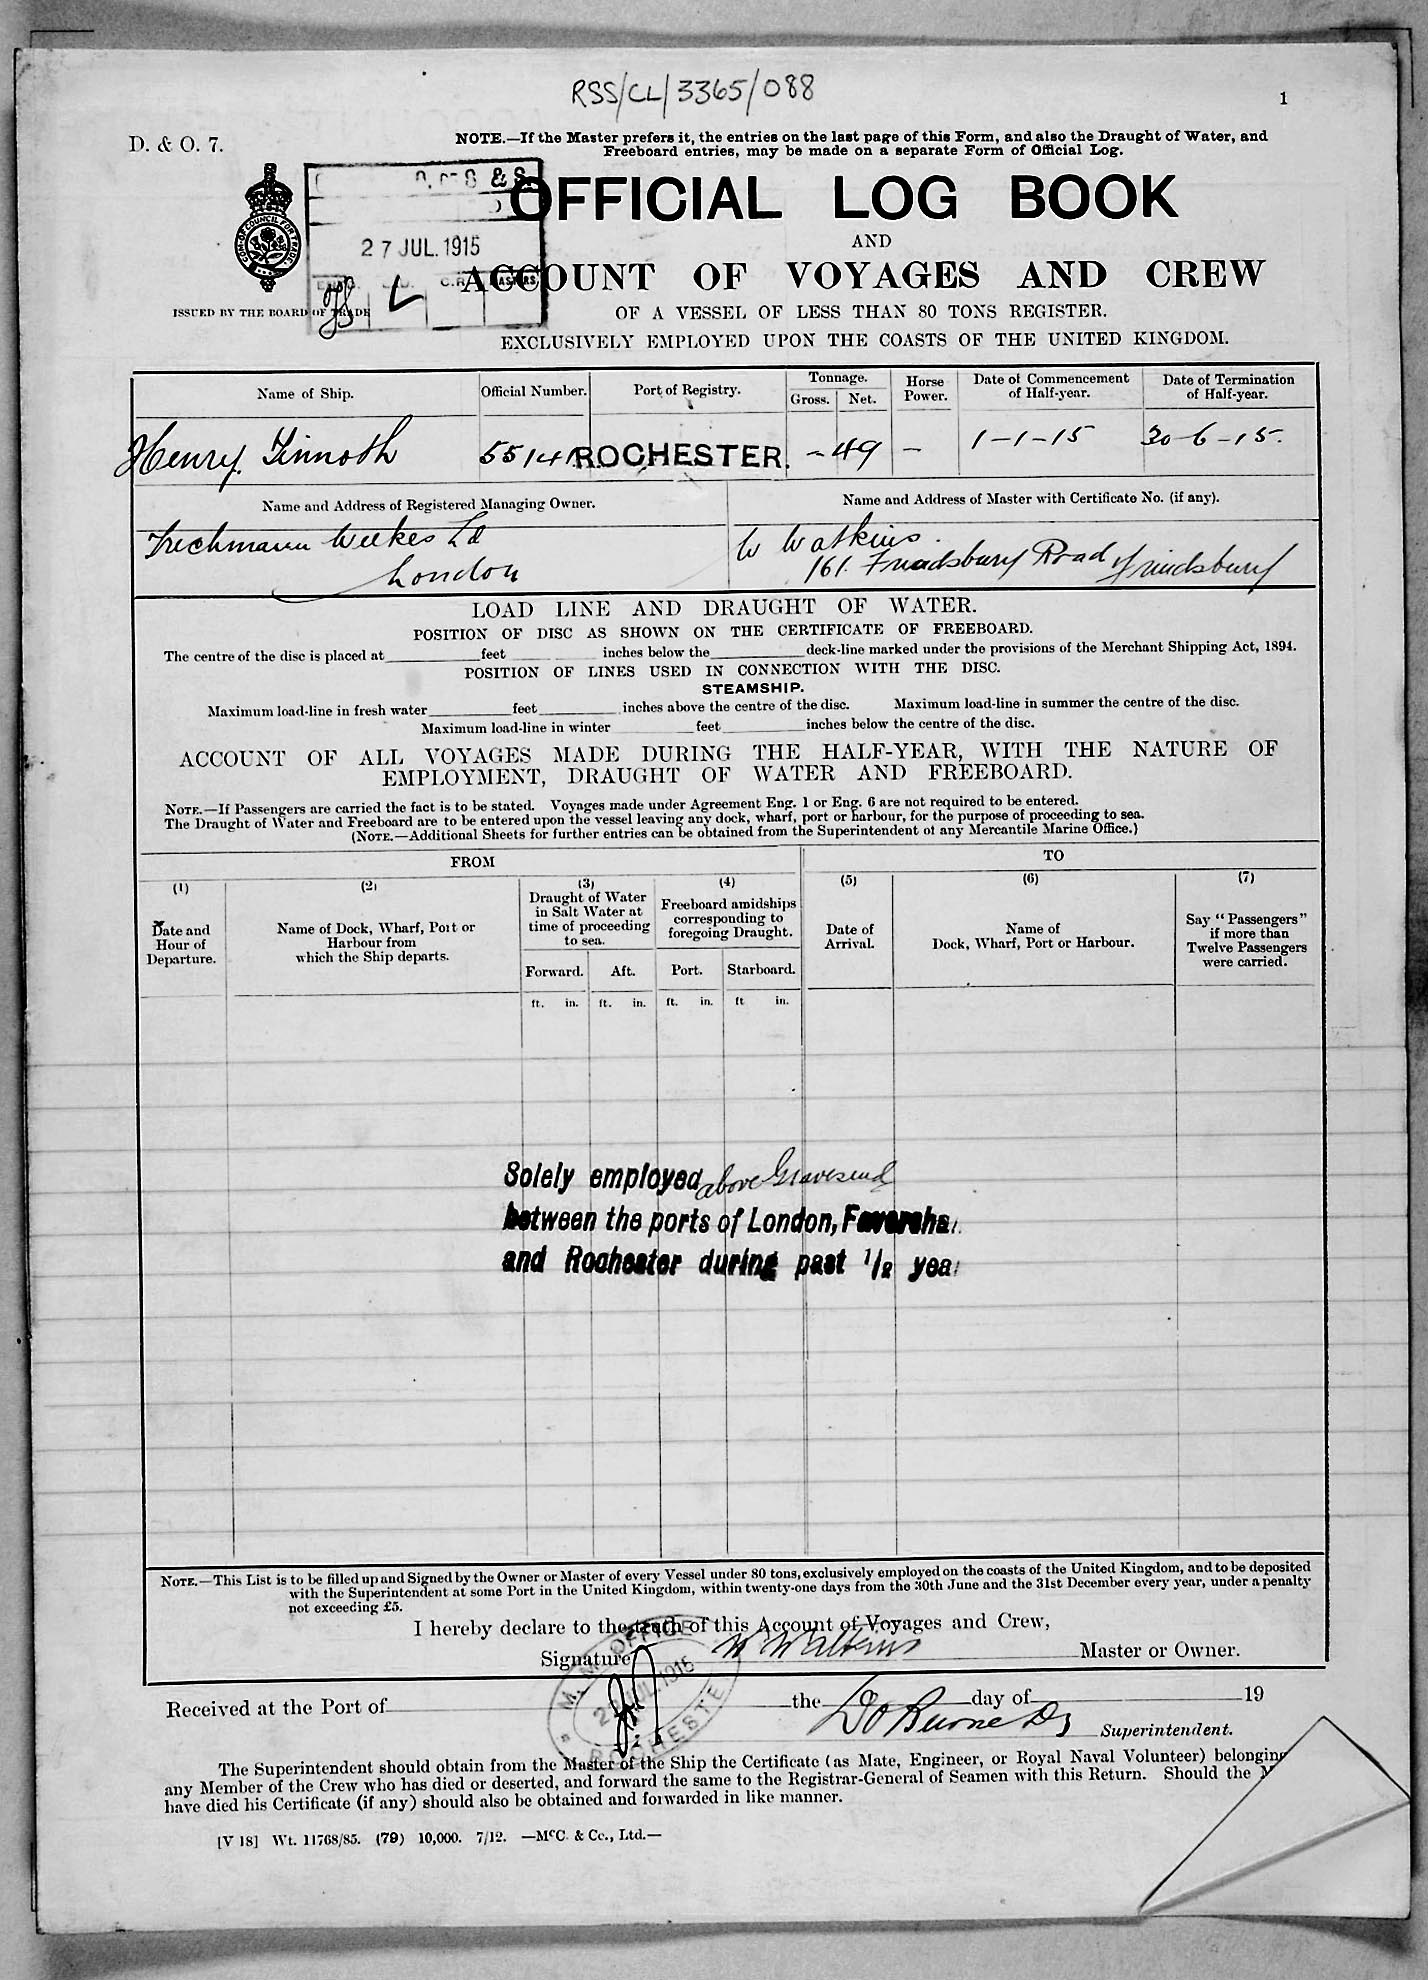 RSS/CL/3365/088
1
D. & O. 7.
NOTE.—If the Master prefers it, the entries on the last page of this Form, and also the Draught of Water, and
Freeboard entries, may be made on a separate Form of Official Log.
& S.
OFFICIAL LOG BOOK
27 JUL. 1915
AND
ACCOUNT OF VOYAGES AND CREW
ISSUED BY THE BOARD OF TRADE
OF A VESSEL OF LESS THAN 80 TONS REGISTER.
EXCLUSIVELY EMPLOYED UPON THE COASTS OF THE UNITED KINGDOM.
Name of Ship. Official Number. Port of Registry. Tonnage. Gross. Net. Horse Power. Date of Commencement of Half-year. Date of Termination of Half-year.
Henry Tinnoth 55141 ROCHESTER. - 49 - 1-1-15 30-6-15.
Name and Address of Registered Managing Owner. Name and Address of Master with Certificate No. (if any).
Trechmann Weekes Ld W Watkins.
London 161. Frindsbury Road Frindsbury
LOAD LINE AND DRAUGHT OF WATER.
POSITION OF DISC AS SHOWN ON THE CERTIFICATE OF FREEBOARD.
The centre of the disc is placed at feet inches below the deck-line marked under the provisions of the Merchant Shipping Act, 1894.
POSITION OF LINES USED IN CONNECTION WITH THE DISC.
STEAMSHIP.
Maximum load-line in fresh water feet inches above the centre of the disc. Maximum load-line in summer the centre of the disc.
Maximum load-line in winter feet inches below the centre of the disc.
ACCOUNT OF ALL VOYAGES MADE DURING THE HALF-YEAR, WITH THE NATURE OF
EMPLOYMENT, DRAUGHT OF WATER AND FREEBOARD.
NOTE.—If Passengers are carried the fact is to be stated. Voyages made under Agreement Eng. 1 or Eng. 6 are not required to be entered.
The Draught of Water and Freeboard are to be entered upon the vessel leaving any dock, wharf, port or harbour, for the purpose of proceeding to sea.
(NOTE.—Additional Sheets for further entries can be obtained from the Superintendent of any Mercantile Marine Office.)
FROM TO
(1) (2) (3) (4) (5) (6) (7)
Date and Hour of Departure.
Name of Dock, Wharf, Port or Harbour from which the Ship departs.
Draught of Water in Salt Water at time of proceeding to sea.
Freeboard amidships corresponding to foregoing Draught.
Date of Arrival.
Name of Dock, Wharf, Port or Harbour.
Say "Passengers" if more than Twelve Passengers were carried.
Forward. Aft. Port. Starboard.
ft. in. ft. in. ft. in. ft in.
Solely employed above Gravesend
between the ports of London, Faversha
and Rochester during past 1/2 yea
NOTE.—This List is to be filled up and Signed by the Owner or Master of every Vessel under 80 tons, exclusively employed on the coasts of the United Kingdom, and to be deposited
with the Superintendent at some Port in the United Kingdom, within twenty-one days from the 30th June and the 31st December every year, under a penalty
not exceeding £5.
I hereby declare to the truth of this Account of Voyages and Crew,
Signature W Watkins Master or Owner.
M. M. OFFICE
ROCHESTER
Received at the Port of the day of 19
Superintendent.
The Superintendent should obtain from the Master of the Ship the Certificate (as Mate, Engineer, or Royal Naval Volunteer) belonging
any Member of the Crew who has died or deserted, and forward the same to the Registrar-General of Seamen with this Return. Should the M
have died his Certificate (if any) should also be obtained and forwarded in like manner.
[V 18] Wt. 11768/85. (79) 10,000. 7/12. —McC. & Co., Ltd.—